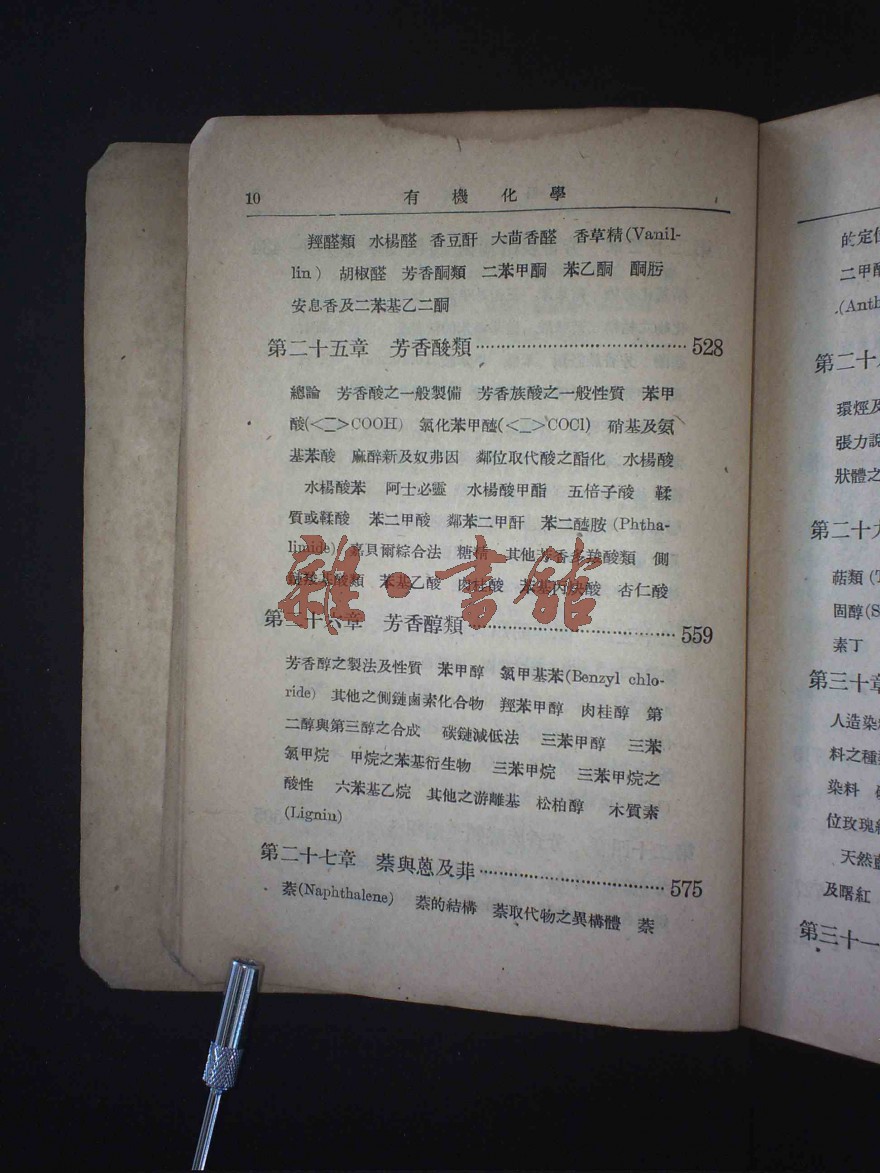 10 有機化學
羥醛類 水楊醛 香豆酐 大茴香醛 香草精(Vanil-
lin) 胡椒醛 芳香酮類 二苯甲酮 苯乙酮 酮肟
安息香及二苯基乙二酮
第二十五章 芳香酸類 528
總論 芳香酸之一般製備 芳香族酸之一般性質 苯甲
酸(<二>COOH) 氯化苯甲醯(<二>COCl) 硝基及氨
基苯酸 麻醉新及奴弗因 鄰位取代酸之酯化 水楊酸
水楊酸苯 阿士必靈 水楊酸甲酯 五倍子酸 鞣
質或鞣酸 苯二甲酸 鄰苯二甲酐 苯二醯胺(Phtha-
limide) 嘉貝爾綜合法 糖精 其他芳香多羧酸類 側
鏈羧基酸類 苯基乙酸 肉桂酸 苯基丙炔酸 杏仁酸
雜·書館
第二十六章 芳香醇類 559
芳香醇之製法及性質 苯甲醇 氯甲基苯(Benzyl chlo-
ride) 其他之側鏈鹵素化合物 羥苯甲醇 肉桂醇 第
二醇與第三醇之合成 碳鏈減低法 三苯甲醇 三苯
氯甲烷 甲烷之苯基衍生物 三苯甲烷 三苯甲烷之
酸性 六苯基乙烷 其他之游離基 松柏醇 木質素
(Ligniu)
第二十七章 萘與蒽及菲 575
萘(Naphthalene) 萘的結構 萘取代物之異構體 萘
的定位
二甲
(Anth
第二十
環烴及
張力說
狀體之
第二十九
萜類(T
固醇(S
素丁
第三十章
人造染
料之種
染料
位玫瑰
天然
及曙紅
第三十一